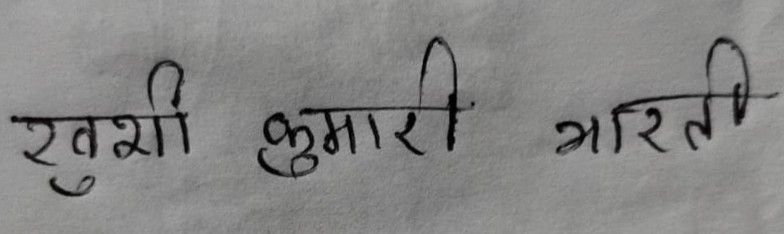 खुशी कुमारी भारती